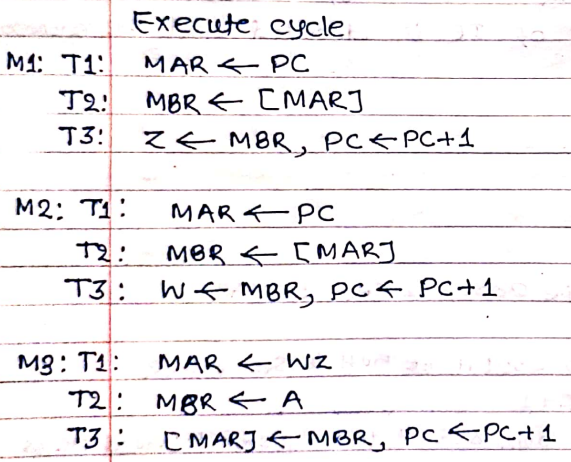 Execute cycle
M1: T1: MAR ← PC
T2: MBR ← [MAR]
T3: Z ← MBR, PC ← PC+1
M2: T1: MAR ← PC
T2: MBR ← [MAR]
T3: W ← MBR, PC ← PC+1
M3: T1: MAR ← WZ
T2: MBR ← A
T3: [MAR] ← MBR, PC ← PC+1